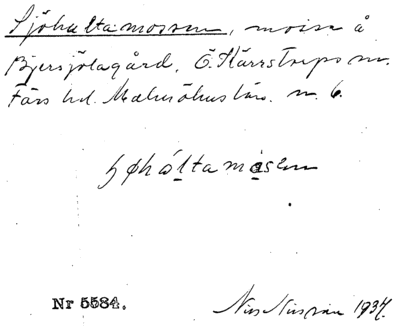 Sjöhultamossen, mosse å
Bjersjölagård, Ö. Kärrstorps sn.
Färs hd. Malmöhus län. n. 6.
høhóltamosen
Nr 5584.
Nils Nilsson 1937.